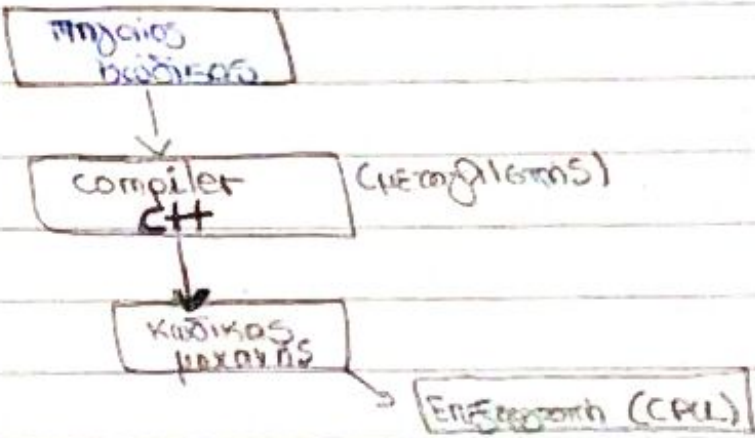 πηγαίος
κώδικας
compiler (μεταγλωττιστής)
C++
κώδικας
μηχανής
(CPU)